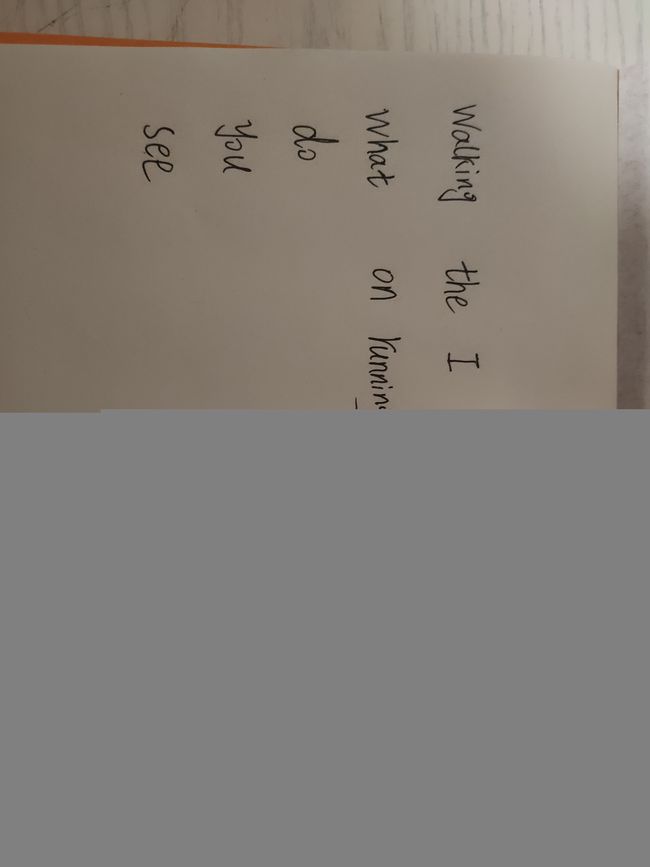 Walking the I
what on
do
you
see